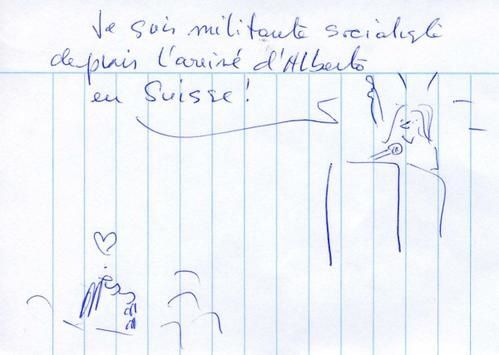 Je suis militante socialiste
depuis l'arrivé d'Alberto
en Suisse !